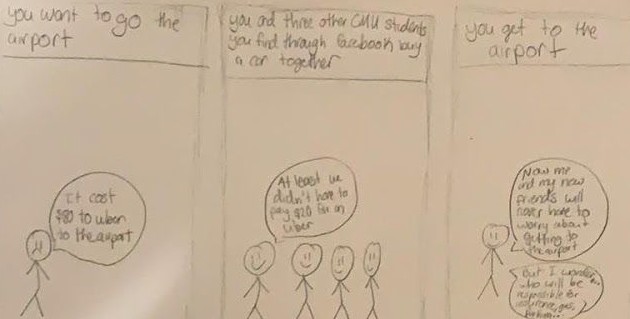 you want to go the
airport
It cost
$80 to uber
to the airport
you and three other CMU students
you find through facebook buy
a car together
At least we
didn't have to
pay $20 for an
uber
you get to the
airport
Now me
and my new
friends will
never have to
worry about
getting to
the airport
But I wonder...
who will be
responsible for
insurance, gas,